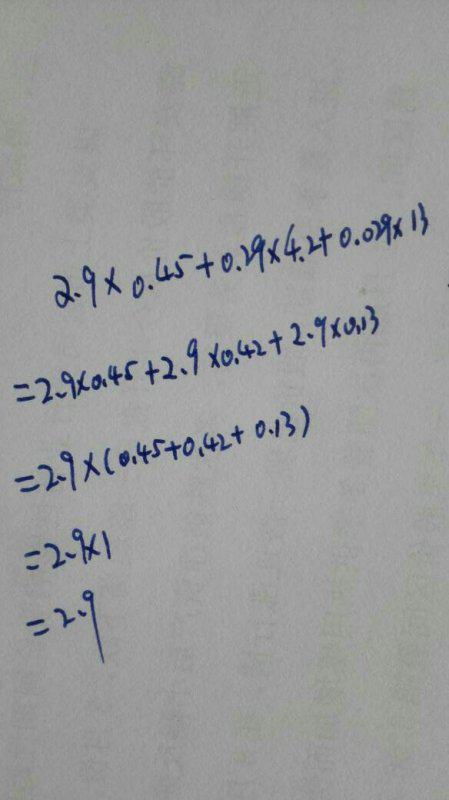 2.9×0.45+0.29×4.2+0.029×13
=2.9×0.45+2.9×0.42+2.9×0.13
=2.9×(0.45+0.42+0.13)
=2.9×1
=2.9